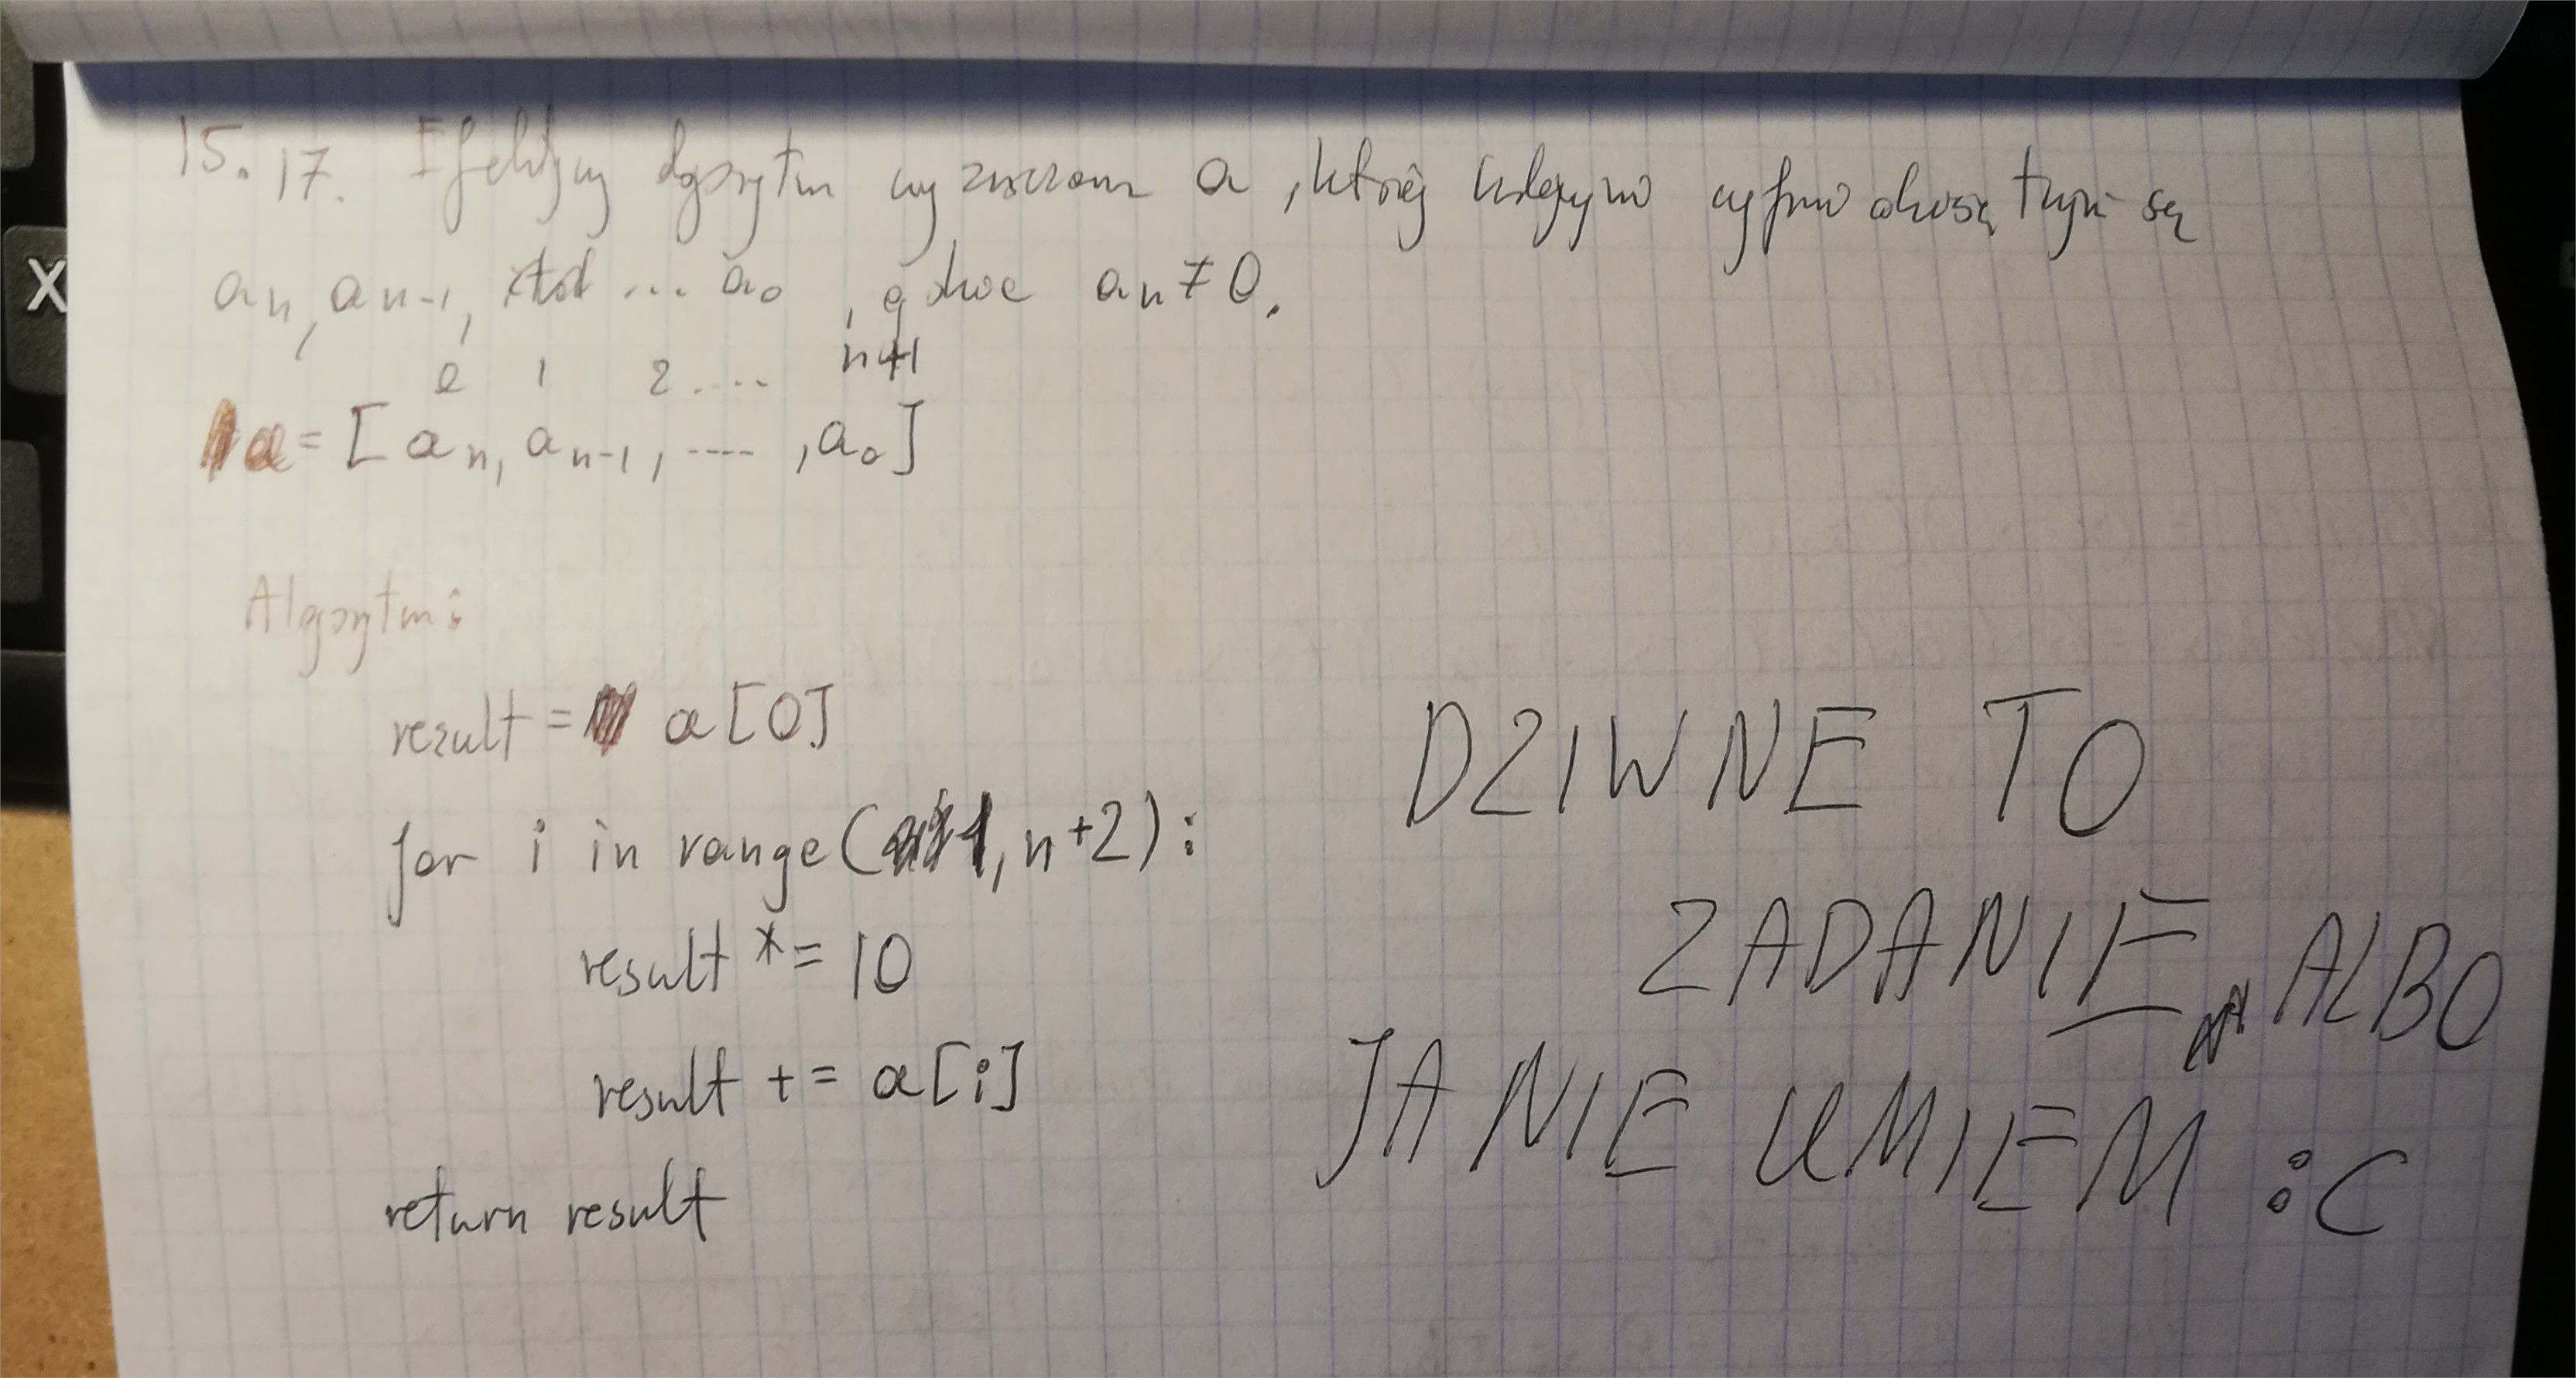 15.17. Efektywny algorytm wyznaczania a, której kolejnymi cyframi dziesiętnymi są
an, an-1, ... a0, gdzie an ≠ 0.
0 1 2 .... n+1
a = [an, an-1, ----, a0]
Algorytm:
result = a[0]
for i in range(1, n+2):
result *= 10
result += a[i]
return result
DZIWNE TO
ZADANIE, ALBO
JA NIE UMIEM :C
X